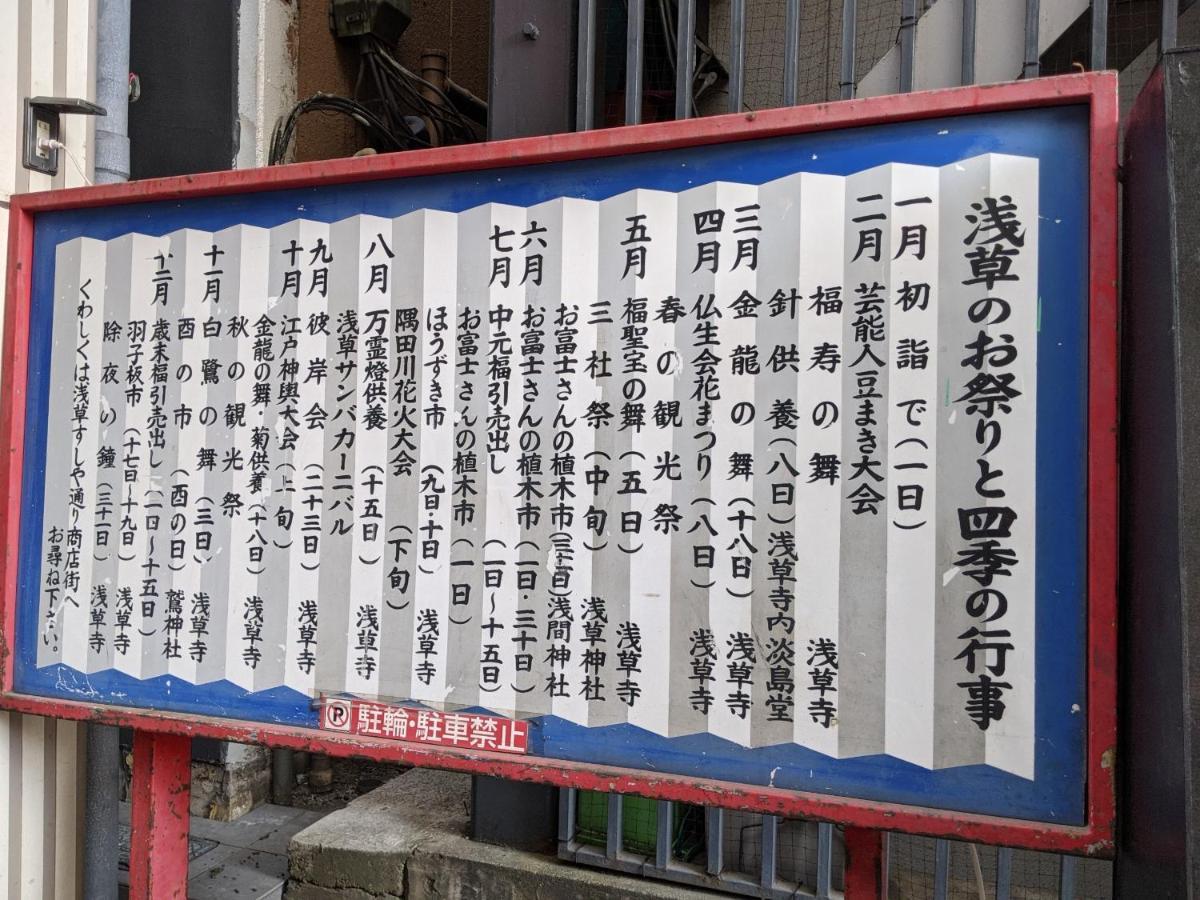 浅草のお祭りと四季の行事
一月 初詣で(一日)
二月 芸能人豆まき大会
福寿の舞 浅草寺
針供養(八日)浅草寺内淡島堂
三月 金龍の舞(十八日) 浅草寺
四月 仏生会花まつり(八日) 浅草寺
春の観光祭
五月 福聖宝の舞(五日) 浅草寺
三社祭(中旬) 浅草神社
お富士さんの植木市(三十一日)浅間神社
六月 お富士さんの植木市(一日・三十日)
七月 中元福引売出し(一日〜十五日)
お富士さんの植木市(一日)
ほうずき市(九日・十日) 浅草寺
隅田川花火大会(下旬)
八月 万霊燈供養(十五日) 浅草寺
浅草サンバカーニバル
九月 彼岸会(二十三日) 浅草寺
十月 江戸神輿大会(上旬)
金龍の舞・菊供養(十八日) 浅草寺
秋の観光祭
十一月 白鷺の舞(三日) 浅草寺
酉の市(酉の日) 鷲神社
十二月 歳末福引売出し(一日〜十五日)
羽子板市(十七日〜十九日) 浅草寺
除夜の鐘(三十一日) 浅草寺
くわしくは浅草すしや通り商店街へ
お尋ね下さい。
駐輪・駐車禁止